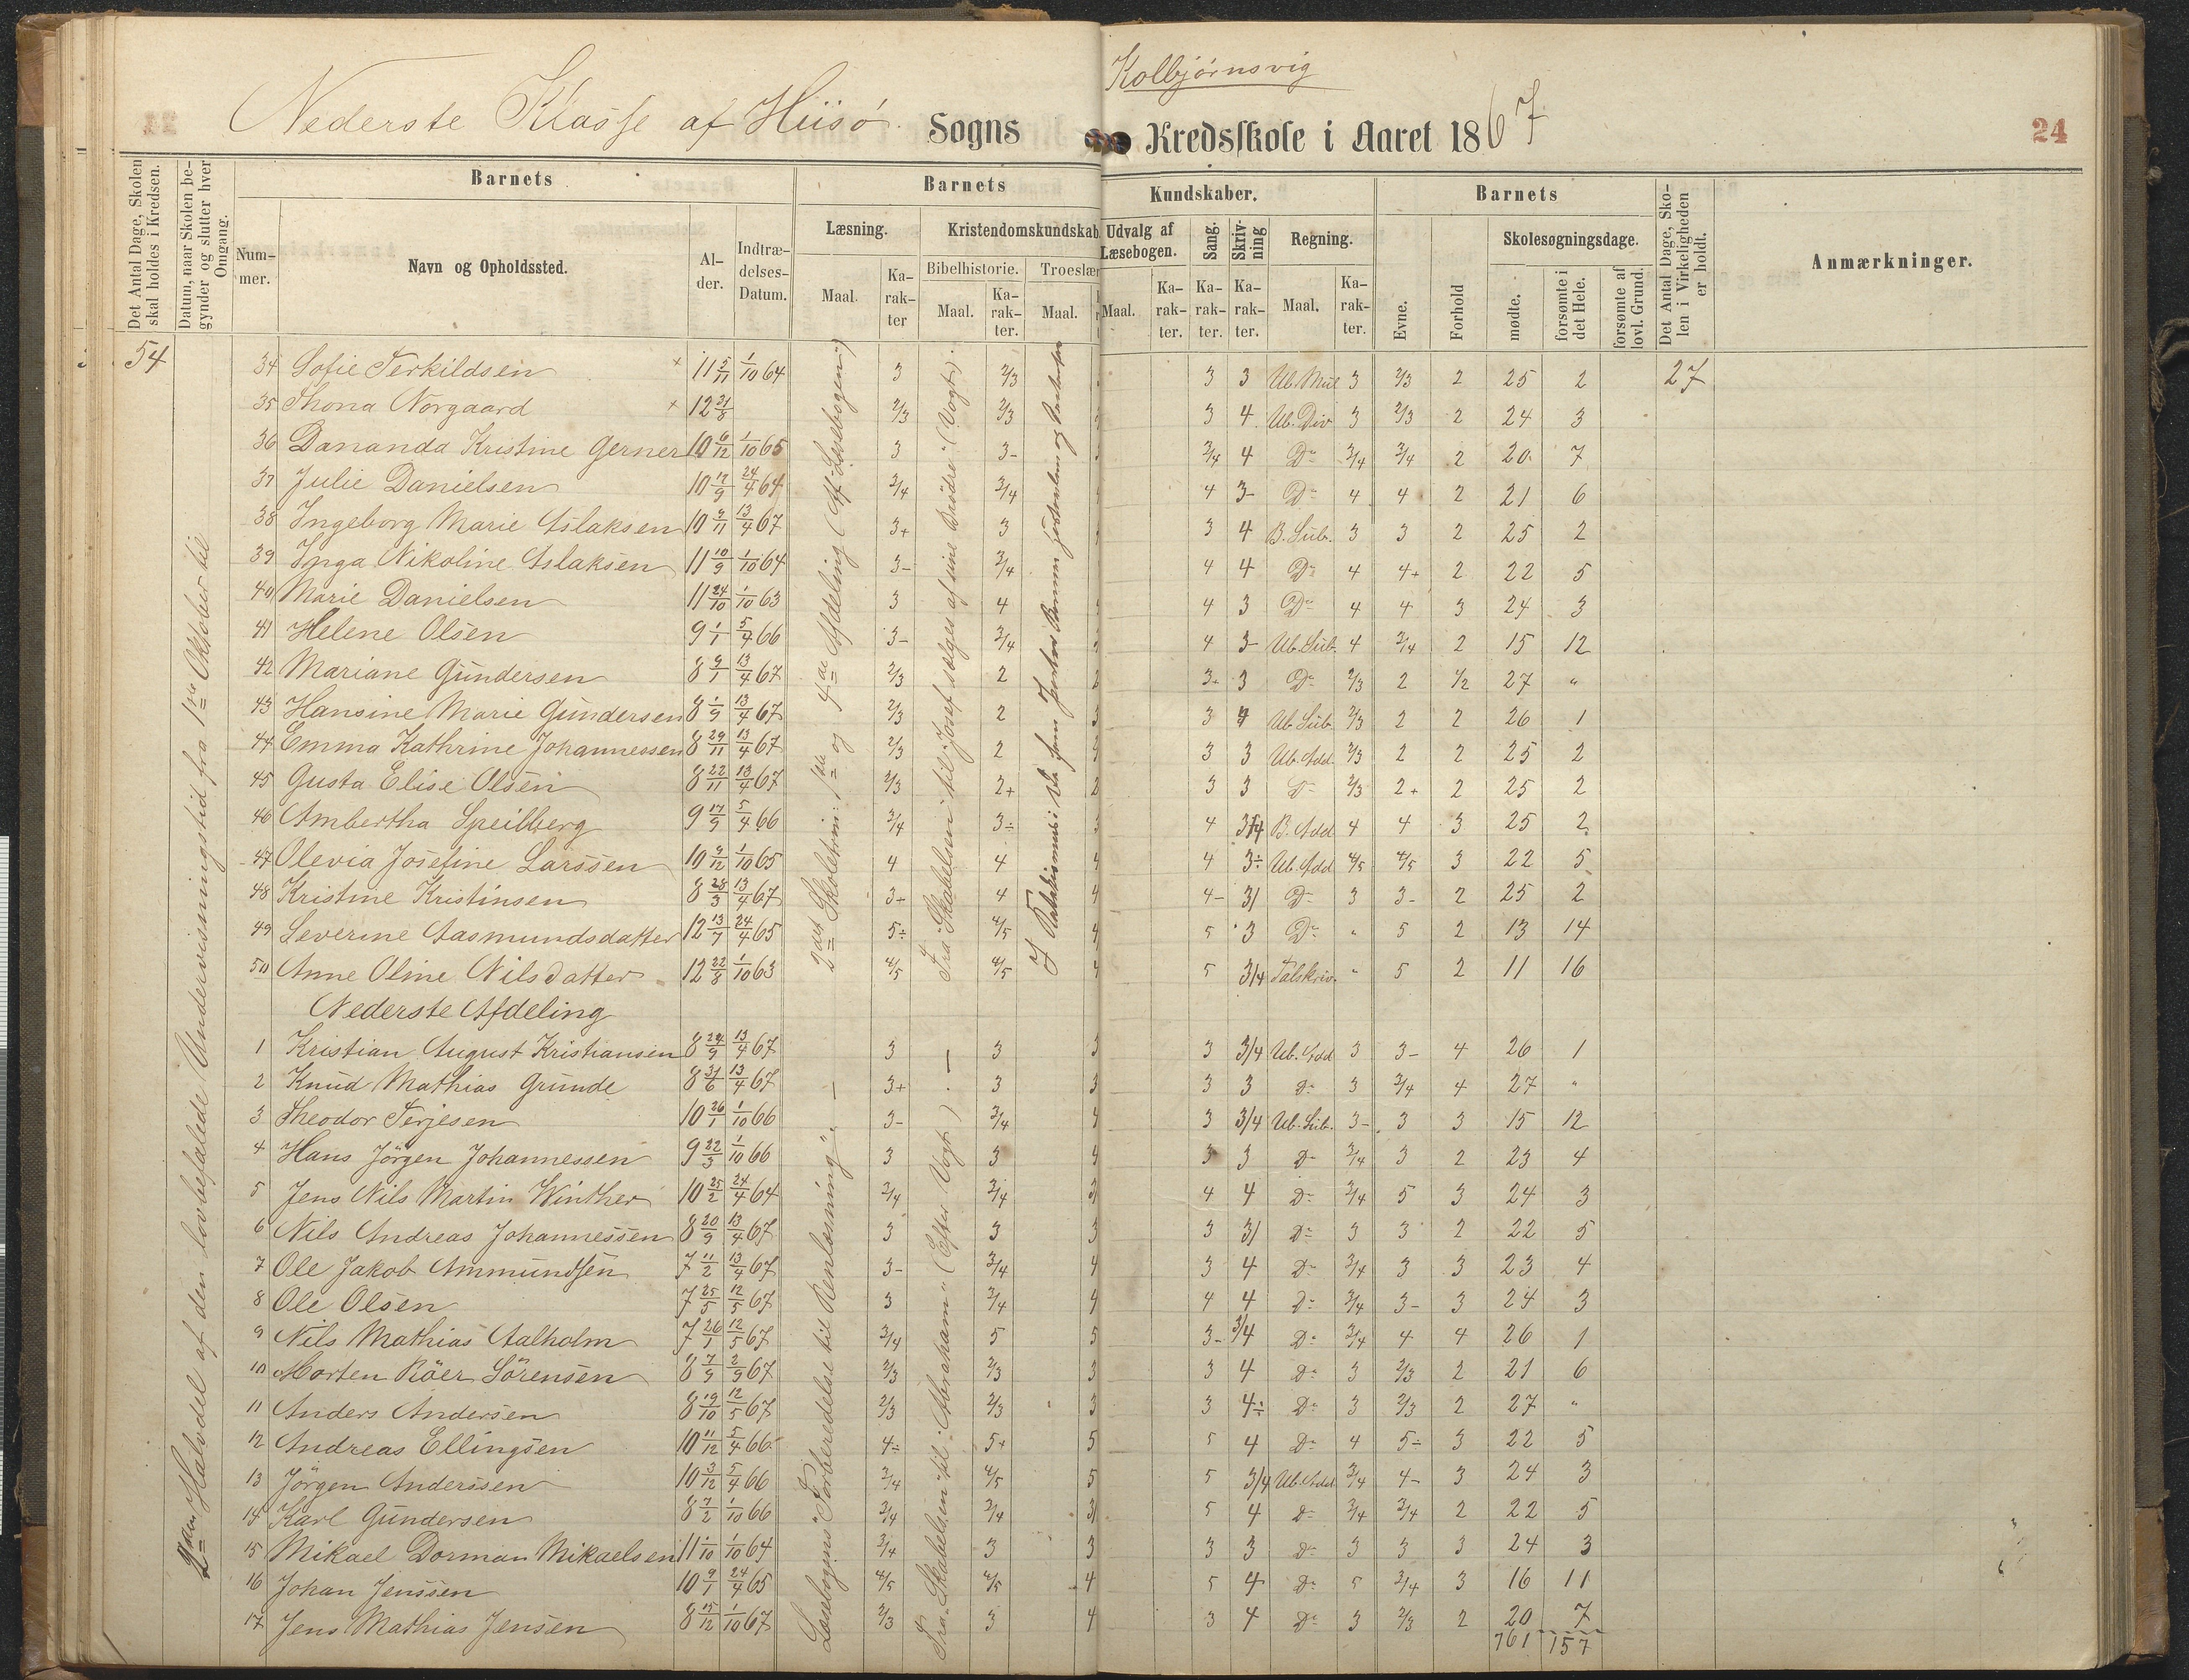 Kolbjørnsvig
Nederste Klasse af Hiisø Sogns Kredsskole i Aaret 1867
24
Det Antal Dage, Skolen skal holdes i Kredsen.
Datum, naar Skolen begynder og slutter hver Omgang.
Barnets
Nummer.
Navn og Opholdssted.
Alder.
Indtrædelses-Datum.
Barnets Kundskaber.
Læsning.
Maal.
Karakter
Kristendomskundskab
Bibelhistorie.
Maal.
Karakter.
Troeslær
Maal.
Udvalg af Læsebogen.
Maal.
Karakter.
Sang.
Karakter.
Skrivning
Karakter.
Regning.
Maal.
Karakter.
Barnets
Evne.
Forhold
Skolesøgningsdage.
mødte.
forsømte i det Hele.
forsømte af lovl. Grund.
Det Antal Dage, Skolen i Virkeligheden er holdt.
Anmærkninger.
54
2den Halvdel af den lovbefalede Undervisningstid fra 1ste Oktober til
2det Skoletrin: 1ste og 4de Afdeling (Af Læsebogen)
Fra Skabelsen til Josef sælges af sine Brødre (Vogt).
34 Sofie Terkildsen × 11 5/11 1/10 64 3 2/3 3 3 Ub. Mul 3 2/3 2 25 2 27
35 Thona Norgaard × 12 21/8 2/3 2/3 3 4 Ub. Div 3 2/3 2 24 3
36 Dananda Kristine Gerner 10 6/12 1/10 65 3 3- 3/4 4 Do 3/4 3/4 2 20 7
37 Julie Danielsen 10 17/9 24/4 64 3/4 3/4 4 3- Do 4 4 2 21 6
38 Ingeborg Marie Aslaksen 10 9/11 13/4 67 3+ 3 3 4 B. Sub. 3 3 2 25 2
39 Inga Nikoline Aslaksen 11 10/9 1/10 64 3- 3/4 4 4 Do 4 4+ 2 22 5
40 Marie Danielsen 11 24/10 1/10 63 3 4 4 3 Do 4 4 3 24 3
41 Helene Olsen 9 1/1 5/4 66 3- 3/4 4 3- Ub. Sub. 4 3/4 2 15 12
42 Mariane Gundersen 8 9/1 13/4 67 2/3 2 2 3+ 3 Do 2/3 2 1/2 27 "
43 Hansine Marie Gundersen 8 1/9 13/4 67 2/3 2 3 3 4 Ub. Sub. 2/3 2 2 26 1
44 Emma Kathrine Johannessen 8 29/11 13/4 67 2/3 2 3 3 3 Ub. Add. 2/3 2 2 25 2
45 Gusta Elise Olsen 8 22/11 13/4 67 2/3 2+ 2 3 3 Do 2/3 2+ 2 25 2
46 Ambertha Speilberg 9 17/9 5/4 66 3/4 3÷ 3 4 3/4 B. Add 4 4 3 25 2
47 Olevia Josefine Larssen 10 9/12 1/10 65 4 4 4 4 3÷ Ub. Add 4/5 4/5 3 22 5
48 Kristine Kristinsen 8 28/3 13/4 67 3+ 4 4 4- 3/ Do 3 3- 2 25 2
49 Severine Aasmundsdatter 12 13/7 24/4 65 5÷ 4/5 4 5 3 Do " 5 2 13 14
50 Anne Oline Nilsdatter 12 22/8 1/10 63 4/5 4/5 4 5 3/4 Talskriv. " 5 2 11 16
Nederste Afdeling
Læsebogens "Forberedelse til Renlæsning".
Fra "Skabelsen til Abraham" (Efter Vogt).
1 Kristian August Kristiansen 8 24/9 13/4 67 3 3 3 3 3/4 Ub. Add 3 3- 4 26 1
2 Knud Mathias Grunde 8 31/6 13/4 67 3+ 3 3 3 3 Do 3 3/4 4 27 "
3 Theodor Terjesen 10 26/1 1/10 66 3- 3/4 4 3 3/4 Ub. Sub. 3- 3 3 15 12
4 Hans Jörgen Johannessen 9 22/3 1/10 66 3 3 4 3 3 Do 3/4 3 2 23 4
5 Jens Nils Martin Winther 10 25/2 24/4 64 3/4 3/4 3/ 4 4 Do 3/4 5 3 24 3
6 Nils Andreas Johannessen 8 20/9 13/4 67 3 3 3 3 3/ Do 3 3 2 22 5
7 Ole Jakob Ammundsen 7 11/2 13/4 67 3- 3/4 4 3 4 Do 3/4 3 3 23 4
8 Ole Olsen 7 25/5 12/5 67 3 3/4 4 4 4 Do 3/4 3- 3 24 3
9 Nils Mathias Aalholm 7 26/1 12/5 67 3/4 5 5 3- 3/4 Do 3/4 4 4 26 1
10 Morten Röer Sörensen 8 7/9 2/9 67 2/3 2/3 3 3 4 Do 3 2/3 2 21 6
11 Anders Andersen 8 19/10 12/5 67 2/3 2/3 3 3 4÷ Do 3 2/3 2 27 "
12 Andreas Ellingsen 10 11/12 5/4 66 4÷ 5+ 5 5 4 Do 4 5÷ 3 22 5
13 Jörgen Anderssen 10 3/12 5/4 66 3/4 4/5 5 5 3/4 Ub. Add 3/4 4- 3 24 3
14 Karl Gundersen 8 7/2 1/10 66 3/4 3/4 3/ 5 4 Do 3/4 3/4 2 22 5
15 Mikael Dorman Mikaelsen 11 1/10 1/10 64 3/4 3 3 3 3 Do 3 3 3 24 3
16 Johan Jenssen 10 9/1 24/4 65 4/5 4/5 4 5 4 Do 5 3/4 3 16 11
17 Jens Mathias Jensen 8 15/12 1/10 67 2/3 3 4 3 4 Do 3 2/3 2 20 7
761 157